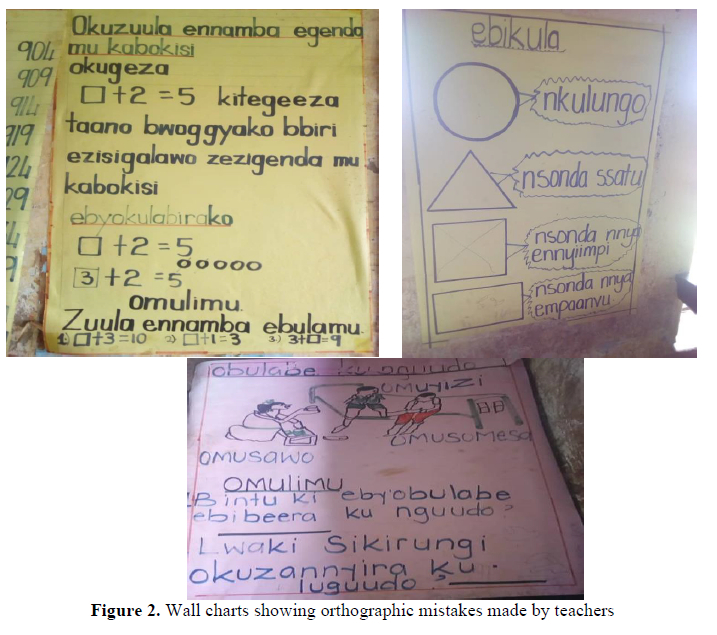 904
909
914
919
24
29
Okuzuula ennamba egenda
mu kabokisi
okugeza
□+2=5 kitegeeza
taano bwoggyako bbiri
ezisigalawo zezigenda mu
kabokisi
ebyokulabirako
□+2=5
3+2=5
omulimu.
Zuula ennamba ebulamu.
1) □+3=10 2) □+1=3 3) 3+□=9
ebikula
nkulungo
nsonda ssatu
nsonda nnya
ennyiimpi
nsonda nnya
empaanvu
obulabe ku nguudo
OMUYIZI
OMUSOMESA
OMUSAWO
OMULIMU
Bintu ki ebyobulabe
ebibeera ku nguudo?
Lwaki Sikirungi
okuzannyira ku
luguudo
Figure 2. Wall charts showing orthographic mistakes made by teachers